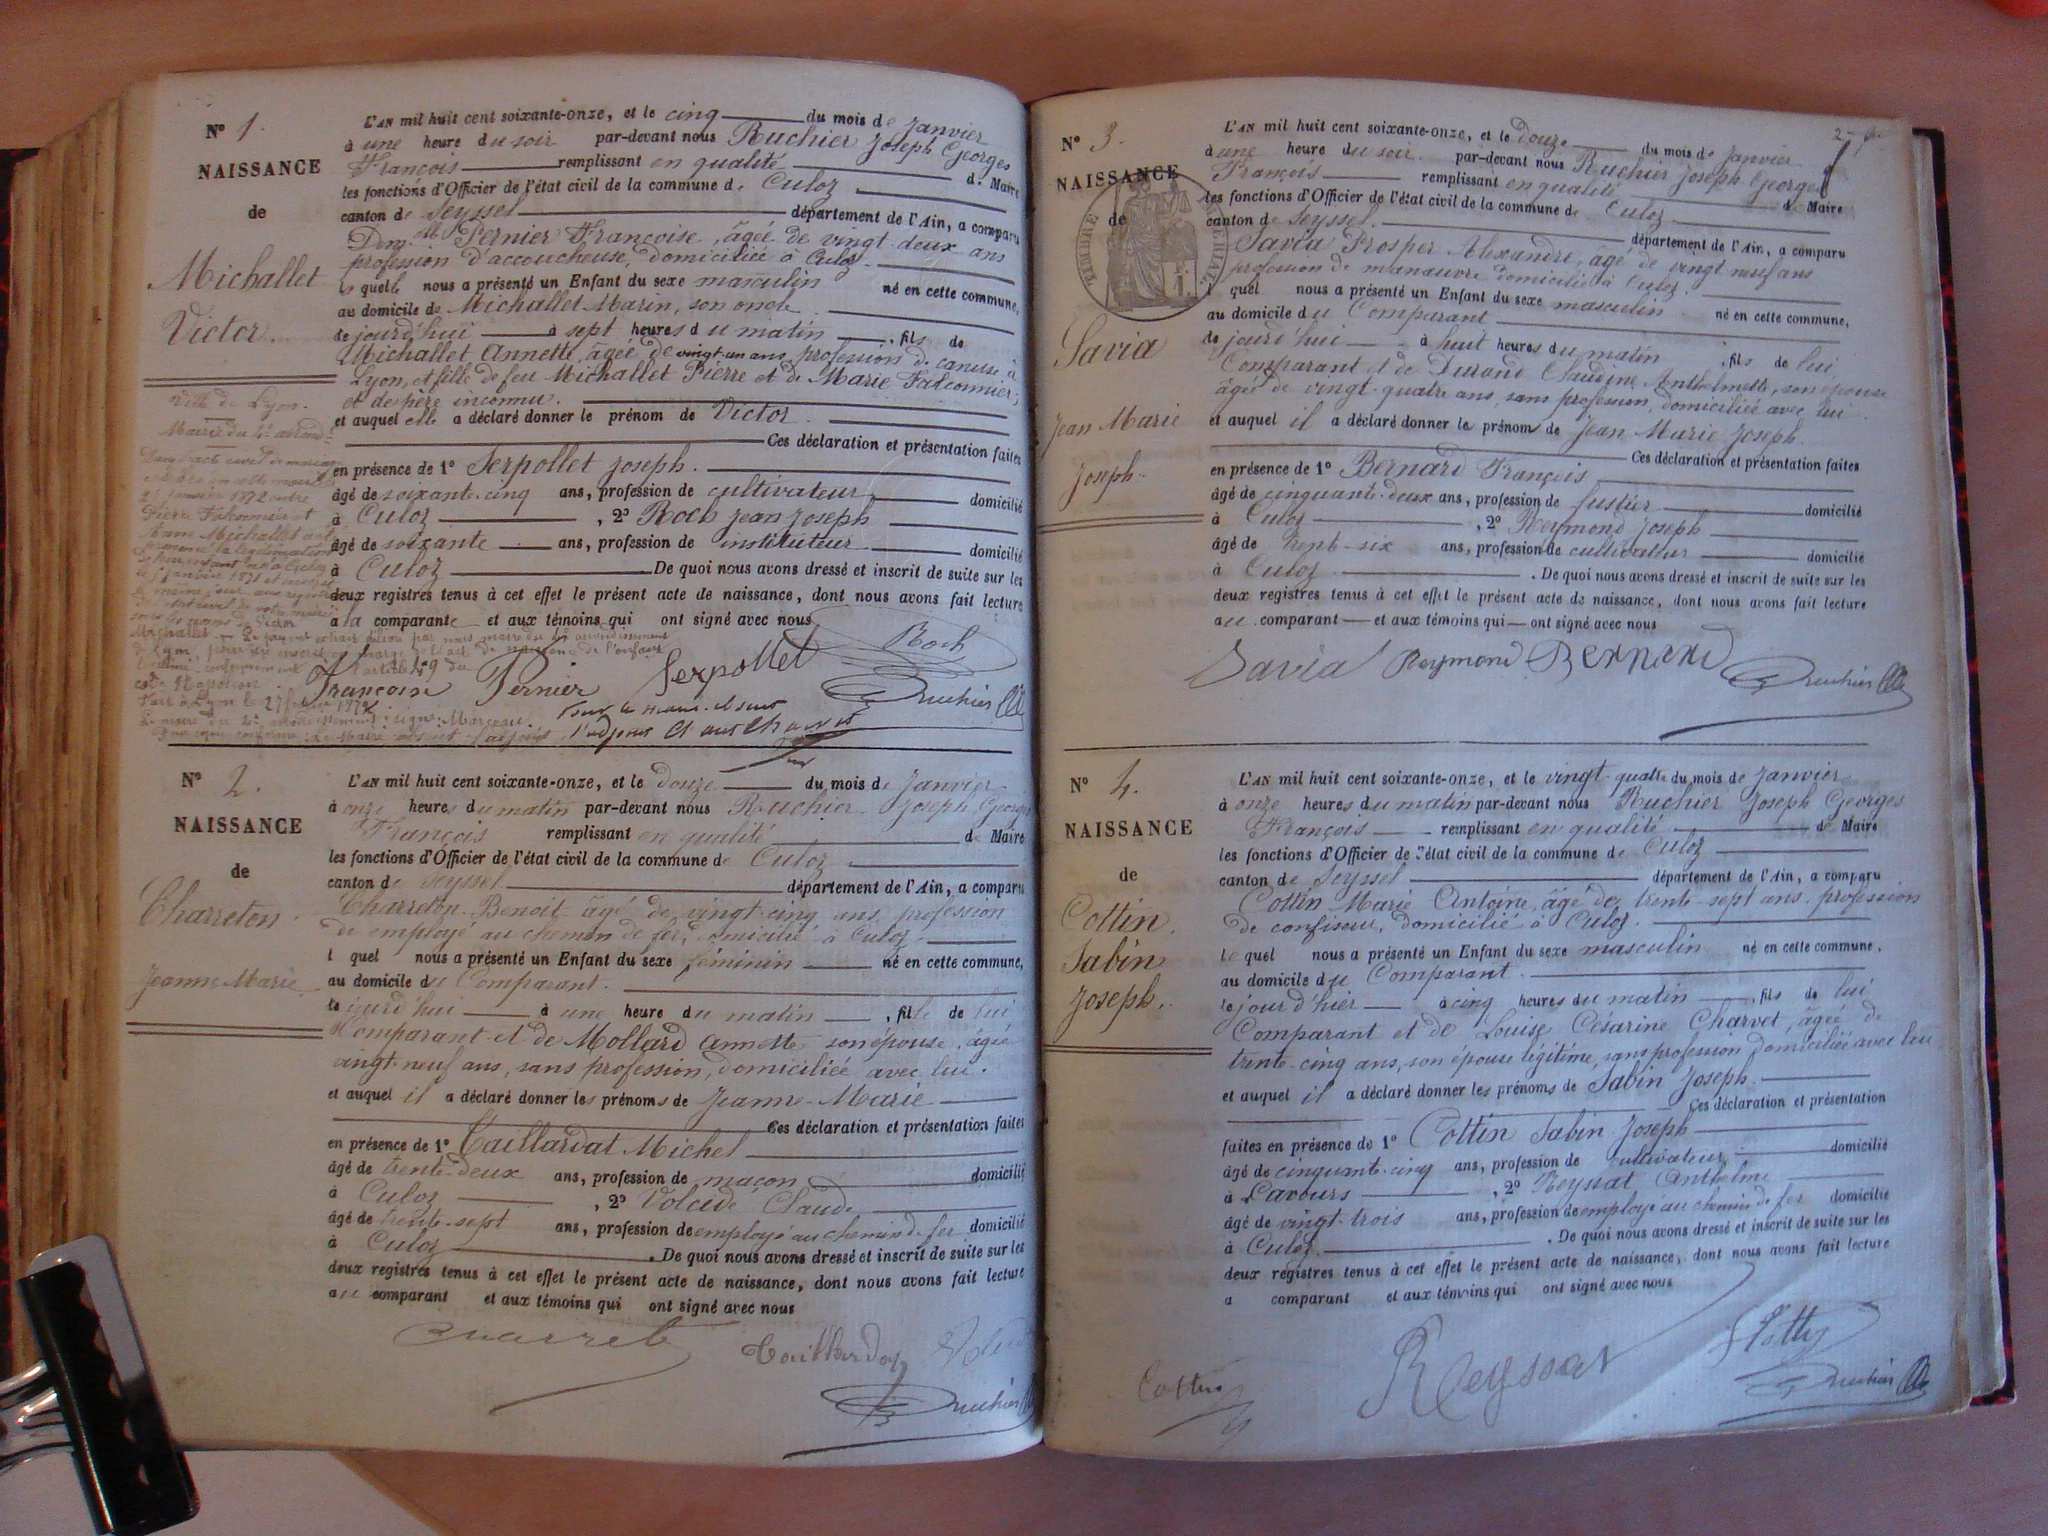 N° 1.
NAISSANCE
de
Michallet
Victor.
L'AN mil huit cent soixante-onze, et le cinq du mois de Janvier
à une heure du soir par-devant nous Ruchier Joseph Georges
François remplissant en qualité de Maire
les fonctions d'Officier de l'état civil de la commune de Culoz
canton de Seyssel département de l'Ain, a comparu
Dem.lle Pernier Françoise, âgée de vingt deux ans
profession d'accoucheuse, domiciliée à Culoz
quelle nous a présenté un Enfant du sexe masculin né en cette commune,
au domicile de Michallet Marin, son oncle
le jourd'hui à sept heures du matin, fils de
Michallet Annette, âgée de vingt-un ans, profession de canuse à
Lyon, et fille de feu Michallet Pierre et de Marie Falconnier,
et de père inconnu.
et auquel elle a déclaré donner le prénom de Victor
Ces déclaration et présentation faites
en présence de 1° Serpollet Joseph.
âgé de soixante-cinq ans, profession de cultivateur domicilié
à Culoz, 2° Roch Jean Joseph
âgé de soixante ans, profession de instituteur domicilié
à Culoz. De quoi nous avons dressé et inscrit de suite sur les
deux registres tenus à cet effet le présent acte de naissance, dont nous avons fait lecture
à la comparante et aux témoins qui ont signé avec nous
Ville de Lyon.
Mairie du 4e arrond.t
Pierre Falconnier et
Anne Michallet
Michallet
Fait à Lyon le 27
Roch
Françoise Pernier Serpollet
Ruchier
N° 2.
NAISSANCE
de
Charreton
Jeanne Marie
L'AN mil huit cent soixante-onze, et le douze du mois de Janvier
à onze heures du matin par-devant nous Ruchier Joseph Georges
François remplissant en qualité de Maire
les fonctions d'Officier de l'état civil de la commune de Culoz
canton de Seyssel département de l'Ain, a comparu
Charreton Benoit âgé de vingt-cinq ans, profession
de employé au chemin de fer, domicilié à Culoz
l quel nous a présenté un Enfant du sexe féminin né en cette commune,
au domicile du Comparant.
le jourd'hui à une heure du matin, fille de lui
Comparant et de Mollard Annette son épouse, âgée
vingt-neuf ans, sans profession, domiciliée avec lui.
et auquel il a déclaré donner les prénoms de Jeanne-Marie
Ces déclaration et présentation faites
en présence de 1° Taillardat Michel
âgé de trente-deux ans, profession de maçon domicilié
à Culoz, 2° Volcedé Claude
âgé de trente-sept ans, profession de employé au chemin de fer domicilié
à Culoz. De quoi nous avons dressé et inscrit de suite sur les
deux registres tenus à cet effet le présent acte de naissance, dont nous avons fait lecture
au comparant et aux témoins qui ont signé avec nous
Taillardat
Ruchier
N° 3.
NAISSANCE
de
Savia
Jean Marie
Joseph.
TIMBRE
L'AN mil huit cent soixante-onze, et le douze du mois de Janvier
à une heure du soir par-devant nous Ruchier Joseph Georges
François remplissant en qualité de Maire
les fonctions d'Officier de l'état civil de la commune de Culoz
canton de Seyssel département de l'Ain, a comparu
Savia Prosper Alexandre, âgé de vingt neuf ans
profession de manœuvre domicilié à Culoz.
l quel nous a présenté un Enfant du sexe masculin né en cette commune,
au domicile du Comparant
le jourd'hui à huit heures du matin, fils de lui
Comparant et de Durand Claudine Anthelmette, son épouse
âgée de vingt-quatre ans, sans profession, domiciliée avec lui
et auquel il a déclaré donner le prénom de Jean Marie Joseph.
Ces déclaration et présentation faites
en présence de 1° Bernard François
âgé de cinquante-deux ans, profession de fustier domicilié
à Culoz, 2° Reymond Joseph
âgé de trente-six ans, profession de cultivateur domicilié
à Culoz. De quoi nous avons dressé et inscrit de suite sur les
deux registres tenus à cet effet le présent acte de naissance, dont nous avons fait lecture
au comparant et aux témoins qui ont signé avec nous
Savia Reymond Bernard
Ruchier
N° 4.
NAISSANCE
de
Cottin
Sabin
Joseph.
L'AN mil huit cent soixante-onze, et le vingt-quatre du mois de Janvier
à onze heures du matin par-devant nous Ruchier Joseph Georges
François remplissant en qualité de Maire
les fonctions d'Officier de l'état civil de la commune de Culoz
canton de Seyssel département de l'Ain, a comparu
Cottin Marie Antoine, âgé de trente-sept ans, profession
de confiseur, domicilié à Culoz.
le quel nous a présenté un Enfant du sexe masculin né en cette commune,
au domicile du Comparant.
le jour d'hier à cinq heures du matin, fils de lui
Comparant et de Louise Césarine Charvet, âgée de
trente-cinq ans, son épouse légitime, sans profession, domiciliée avec lui
et auquel il a déclaré donner les prénoms de Sabin Joseph.
Ces déclaration et présentation
faites en présence de 1° Cottin Sabin Joseph
âgé de cinquante-cinq ans, profession de cultivateur domicilié
à Lavours, 2° Reyssat Anthelme
âgé de vingt-trois ans, profession de employé au chemin de fer domicilié
à Culoz. De quoi nous avons dressé et inscrit de suite sur les
deux registres tenus à cet effet le présent acte de naissance, dont nous avons fait lecture
a comparant et aux témoins qui ont signé avec nous
Cottin Reyssat
Ruchier